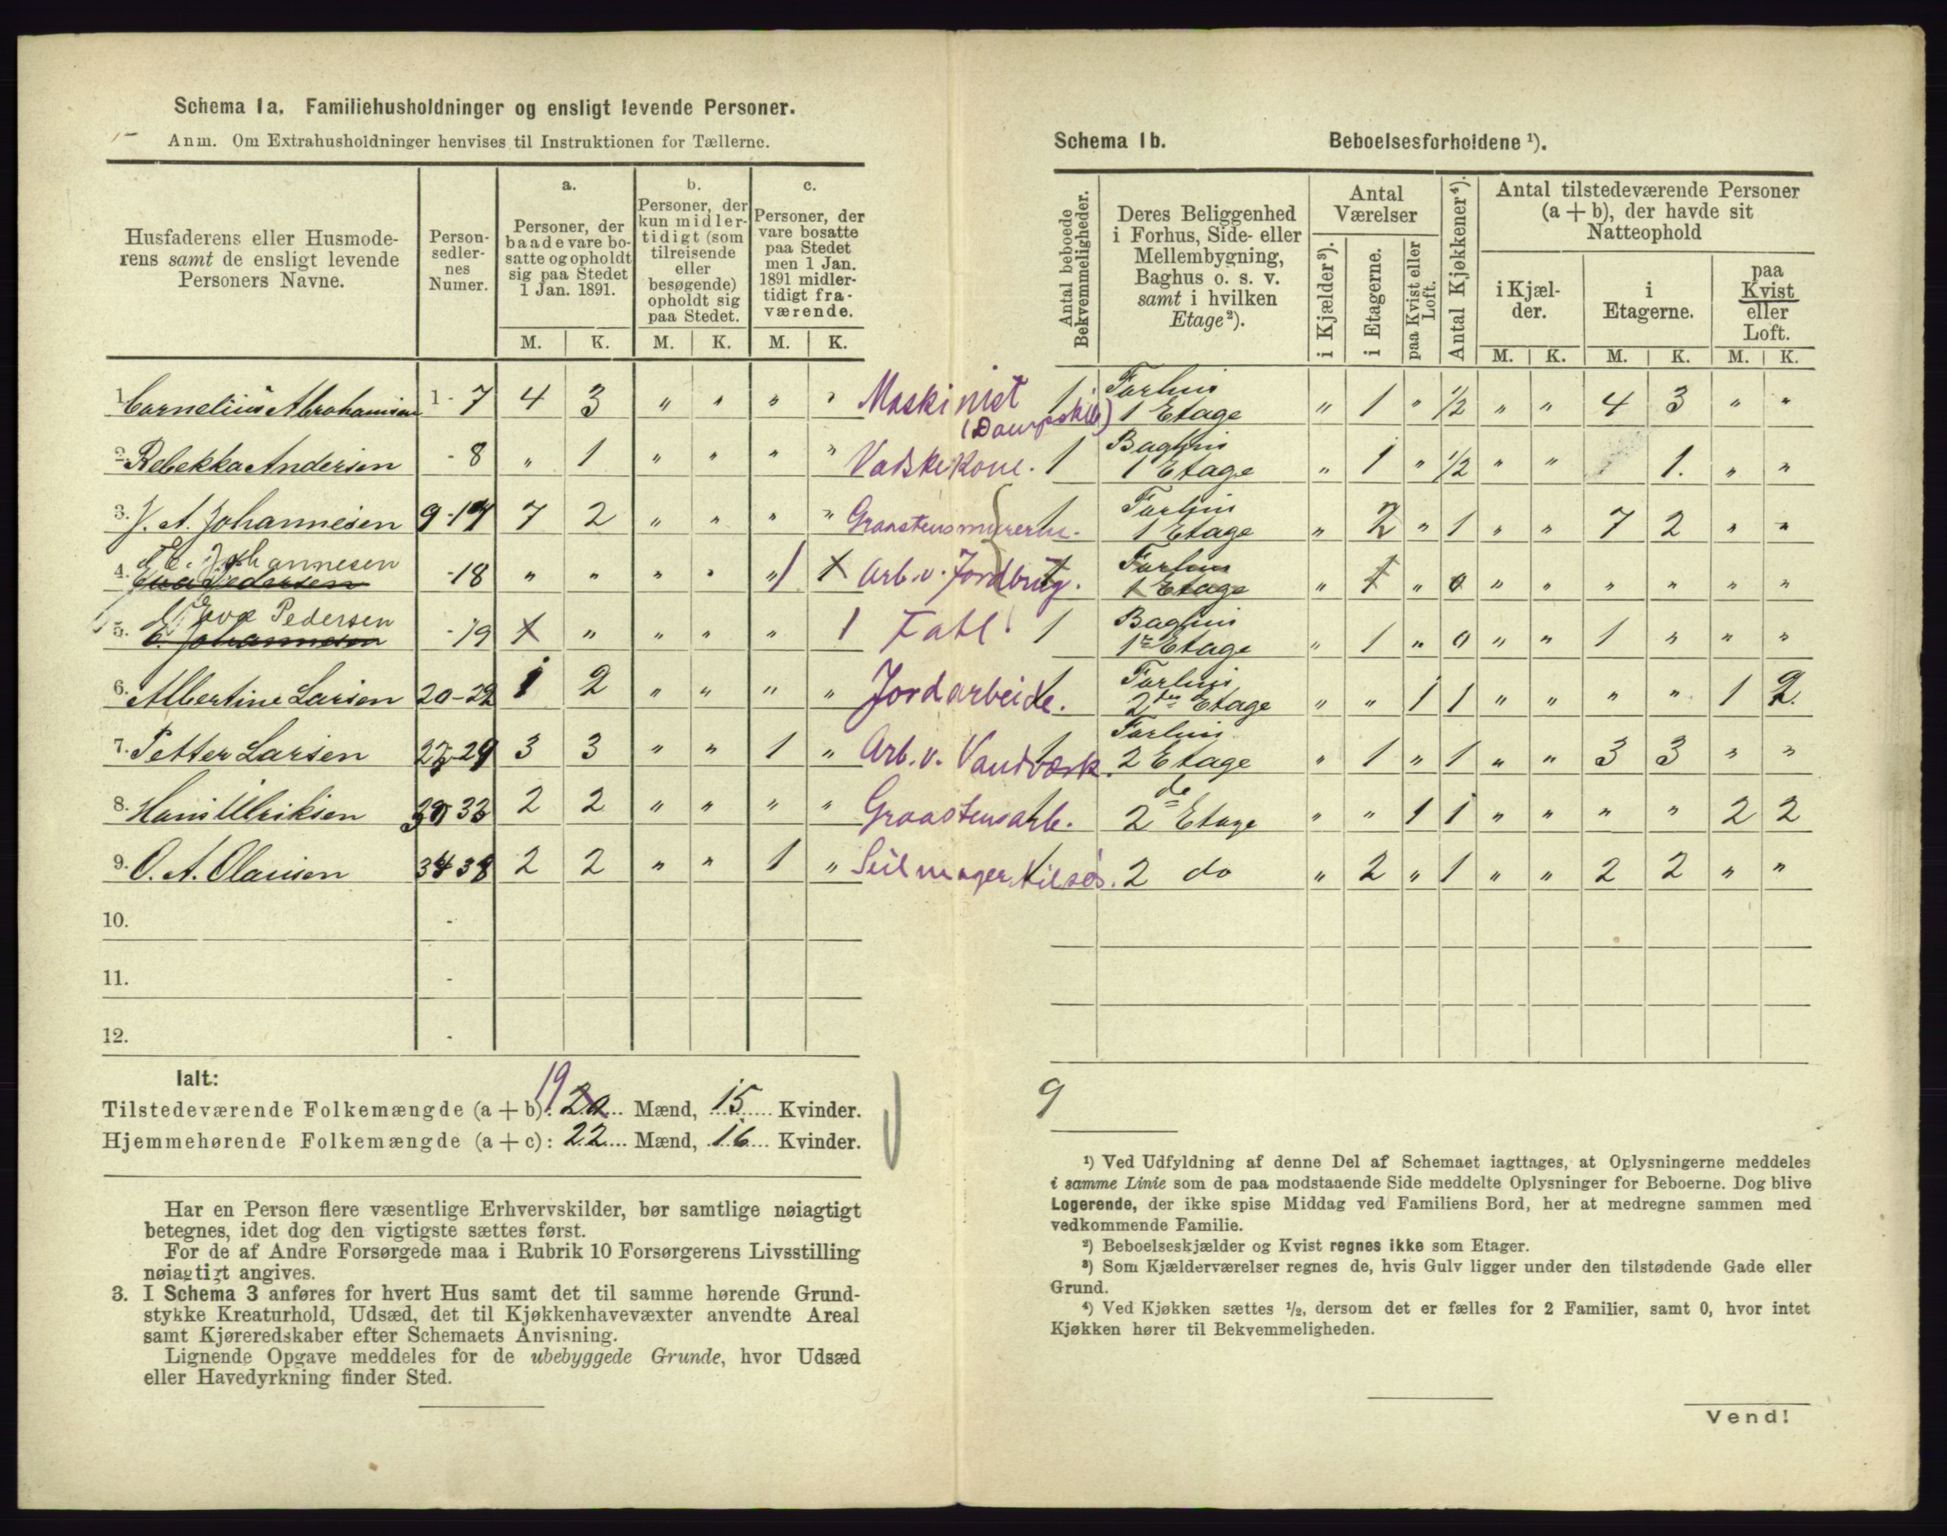 Schema 1a. Familiehusholdninger og ensligt levende Personer.
Anm. Om Extrahusholdninger henvises til Instruktionen for Tællerne.
Husfaderens eller Husmoderens samt de ensligt levende Personers Navne.
Personsedlernes Numer.
a. Personer, der baade vare bosatte og opholdt sig paa Stedet 1 Jan. 1891.
b. Personer, der kun midlertidigt (som tilreisende eller besøgende) opholdt sig paa Stedet.
c. Personer, der vare bosatte paa Stedet men 1 Jan. 1891 midlertidigt fraværende.
M. K. M. K. M. K.
1. Cornelius Abrahamsen 1-7 4 3 " " " " Maskinist (Dampskib)
2. Rebekka Andersen -8 " 1 " " " " Vadskekone.
3. J. A. Johannesen 9-17 7 2 " " " " Graastensmurerhv.
4. E. Johannesen Eva Pedersen -18 " " " " 1 1 Arb. v. Jordbrug.
5. Eva Pedersen E. Johannesen -19 1 " " " " 1 Fatl.
6. Albertine Larsen 20-22 1 2 " " " " Jordarbeide.
7. Petter Larsen 23-29 3 3 " " 1 " Arb. v. Vandværk.
8. Hans Ulriksen 30 33 2 2 " " " " Graastensarb.
9. O. A. Olausen 34 38 2 2 " " 1 " Seilmager tilsøs.
10. -
11. -
12. -
Ialt:
Tilstedeværende Folkemængde (a + b): 19 20 Mænd, 15 Kvinder.
Hjemmehørende Folkemængde (a + c): 22 Mænd, 16 Kvinder.
Har en Person flere væsentlige Erhvervskilder, bør samtlige nøiagtigt
betegnes, idet dog den vigtigste sættes først.
For de af Andre Forsørgede maa i Rubrik 10 Forsørgerens Livsstilling
nøiagtigt angives.
3. I Schema 3 anføres for hvert Hus samt det til samme hørende Grund-
stykke Kreaturhold, Udsæd, det til Kjøkkenhavevæxter anvendte Areal
samt Kjøreredskaber efter Schemaets Anvisning.
Lignende Opgave meddeles for de ubebyggede Grunde, hvor Udsæd
eller Havedyrkning finder Sted.
Schema 1b. Beboelsesforholdene ¹).
Antal beboede Bekvemmeligheder.
Deres Beliggenhed i Forhus, Side- eller Mellembygning, Baghus o. s. v. samt i hvilken Etage²).
Antal Værelser
i Kjælder³).
i Etagerne.
paa Kvist eller Loft.
Antal Kjøkkener⁴).
Antal tilstedeværende Personer (a + b), der havde sit Natteophold
i Kjælder. i Etagerne. paa Kvist eller Loft.
M. K. M. K. M. K.
1 Forhus 1 Etage " 1 " 1/2 " " 4 3 " "
1 Baghus 1 Etage " 1 " 1/2 " " 1. " "
1 Forhus 1 Etage " 2 " 1 " " 7 2 " "
1 Forhus 1 Etage " 1 " 0 " " " " " "
1 Baghus 1te Etage " 1 " 0 " " 1 " " "
1 Forhus 2den Etage " " 1 1 " " " " 1 2.
1 Forhus 2 Etage " 1 " 1 " " 3 3 " "
1 do 2 Etage " " 1 1 " " " " 2 2
1 2 do " 2 " 1 " " 2 2 " "
9
¹) Ved Udfyldning af denne Del af Schemaet iagttages, at Oplysningerne meddeles
i samme Linie som de paa modstaaende Side meddelte Oplysninger for Beboerne. Dog blive
Logerende, der ikke spise Middag ved Familiens Bord, her at medregne sammen med
vedkommende Familie.
²) Beboelseskjælder og Kvist regnes ikke som Etager.
³) Som Kjælderværelser regnes de, hvis Gulv ligger under den tilstødende Gade eller
Grund.
⁴) Ved Kjøkken sættes ½, dersom det er fælles for 2 Familier, samt 0, hvor intet
Kjøkken hører til Bekvemmeligheden.
Vend!